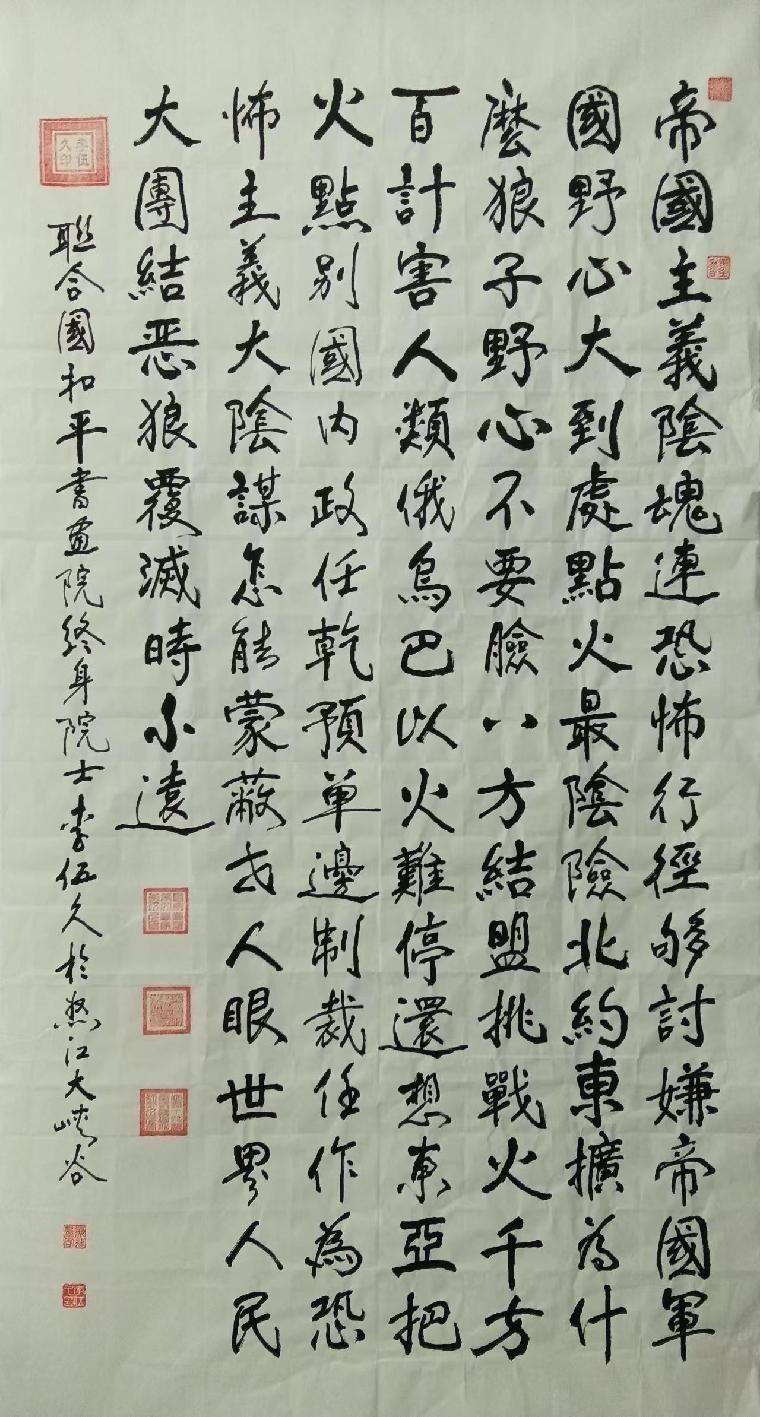 帝國主義陰魂連恐怖行徑够討嫌帝國軍
國野心大到處點火最陰險北約東擴為什
麼狼子野心不要臉八方結盟挑戰火千方
百計害人類俄烏巴以火難停還想東亞把
火點別國内政任乾預單邊制裁任作為恐
怖主義大陰謀怎能蒙蔽世人眼世界人民
大團結恶狼覆滅時不遠
聯合國和平書画院终身院士李伍久於怒江大峽谷
李伍久印